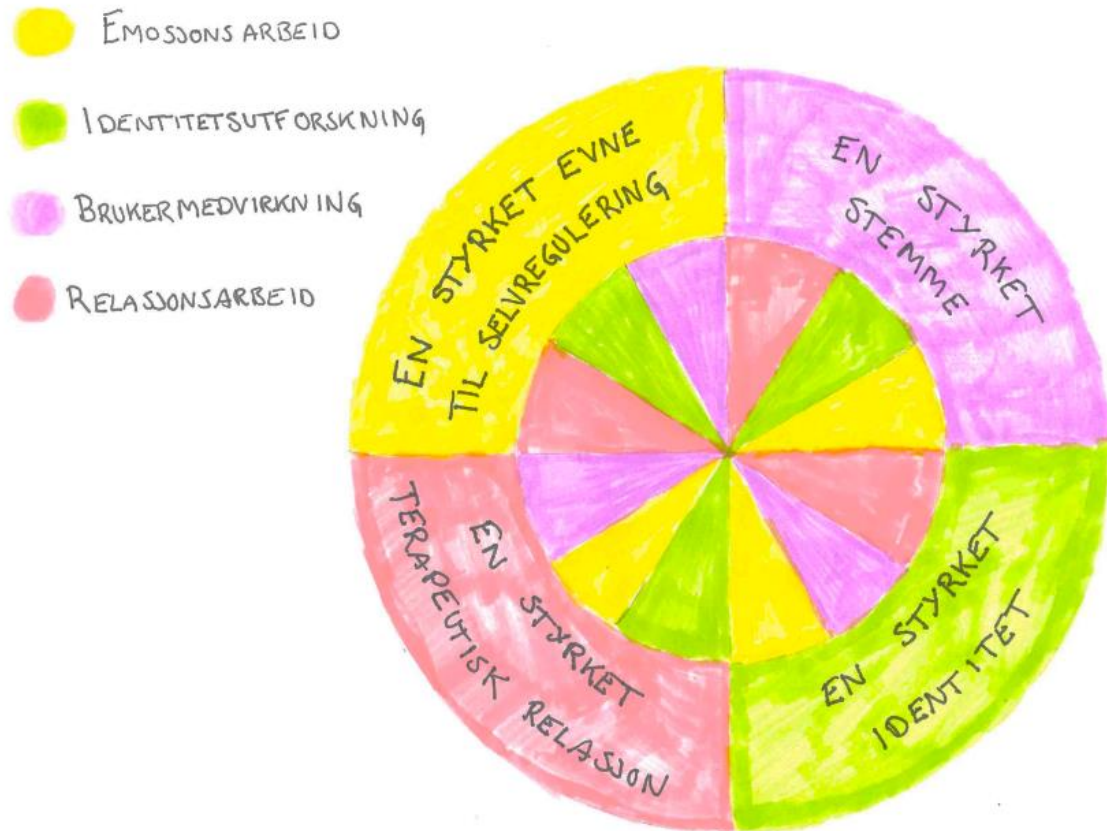 EMOSJONSARBEID
IDENTITETSUTFORSKNING
BRUKERMEDVIRKNING
RELASJONSARBEID
EN STYRKET EVNE
TIL SELVREGULERING
EN STYRKET
STEMME
EN STYRKET
TERAPEUTISK RELASJON
EN STYRKET
IDENTITET